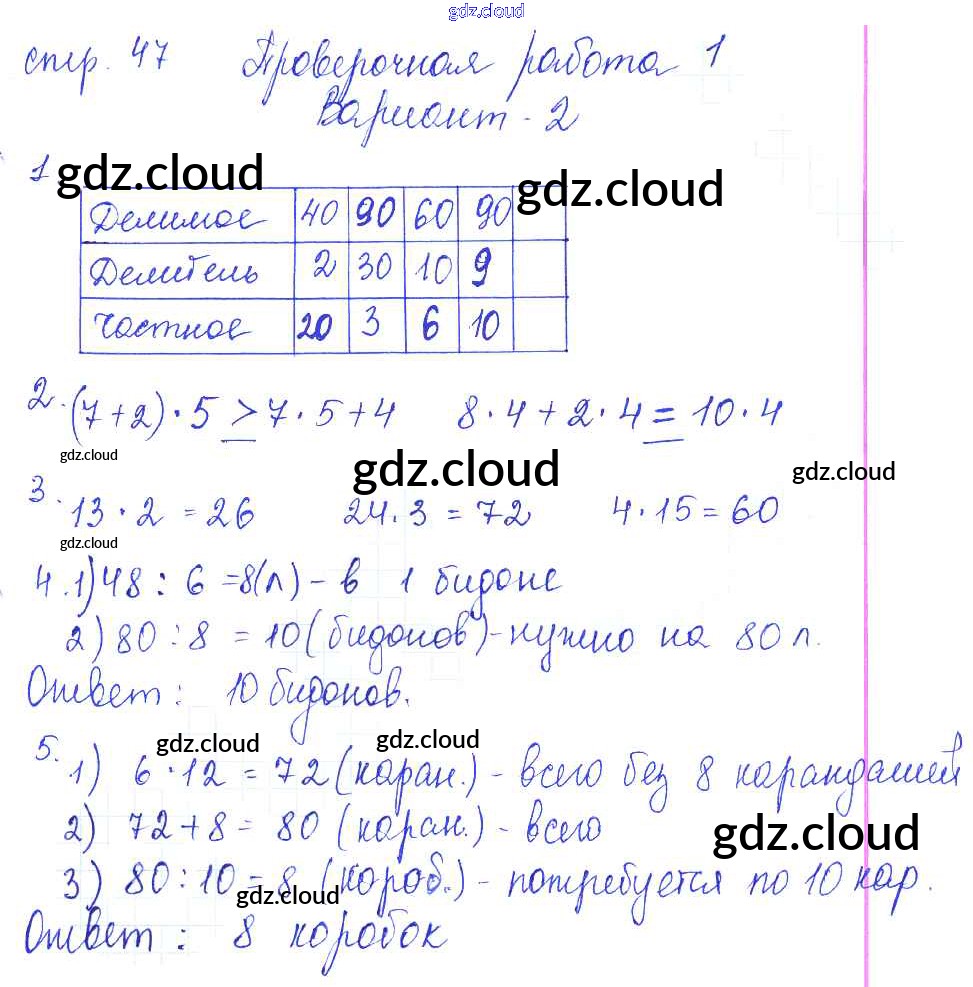 gdz.cloud
стр. 47 Проверочная работа 1
Вариант - 2
1 gdz.cloud gdz.cloud
Делимое 40 90 60 90
Делитель 2 30 10 9
Частное 20 3 6 10
2. (7+2)·5 > 7·5+4 8·4+2·4 = 10·4
gdz.cloud gdz.cloud gdz.cloud
3. 13·2 = 26 24·3 = 72 4·15 = 60
gdz.cloud
4. 1) 48 : 6 = 8(л) - в 1 бидоне
2) 80 : 8 = 10 (бидонов) - нужно на 80 л.
Ответ: 10 бидонов.
gdz.cloud gdz.cloud
5. 1) 6·12 = 72 (каран.) - всего без 8 карандашей
2) 72+8 = 80 (каран.) - всего
gdz.cloud
3) 80:10 = 8 (короб.) - потребуется по 10 кар.
gdz.cloud
Ответ: 8 коробок